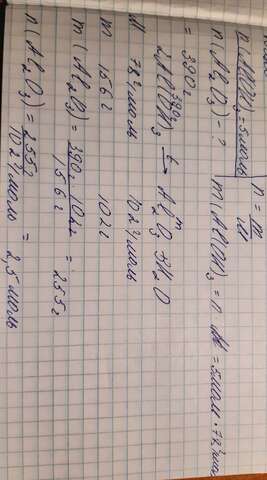 n(Al(OH)₃) = 5 моль
n = m/M
n(Al₂O₃) - ? m(Al(OH)₃ = n · M = 5 моль · 78 г/моль
= 390 г
390 г m
2Al(OH)₃ t→ Al₂O₃ + 3H₂O
M 78 г/моль 102 г/моль
m 156 г 102 г
m(Al₂O₃) = 390 · 102 / 156 г = 255 г
n(Al₂O₃) = 255 / 102 г/моль = 2,5 моль